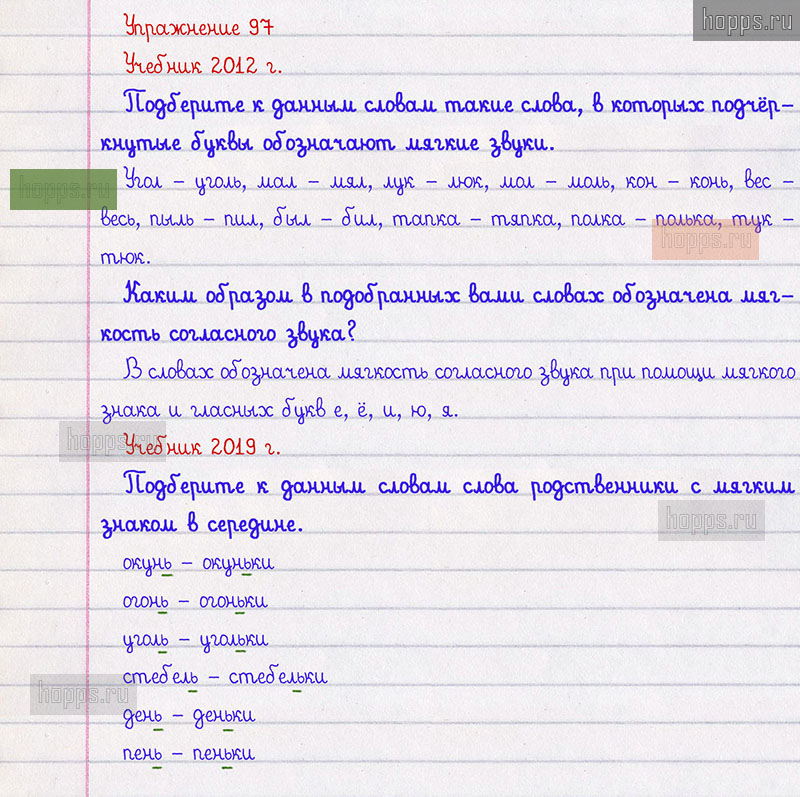 hopps.ru
Упражнение 97
Учебник 2012 г.
Подберите к данным словам такие слова, в которых подчёр-
кнутые буквы обозначают мягкие звуки.
hopps.ru
Угол – уголь, мал – мял, лук – люк, мол – моль, кон – конь, вес –
весь, пыль – пил, был – бил, тапка – тяпка, полка – полька, тук –
hopps.ru
тюк.
Каким образом в подобранных вами словах обозначена мяг-
кость согласного звука?
В словах обозначена мягкость согласного звука при помощи мягкого
знака и гласных букв е, ё, и, ю, я.
hopps.ru
Учебник 2019 г.
Подберите к данным словам слова родственники с мягким
знаком в середине.
hopps.ru
окунь – окуньки
огонь – огоньки
уголь – угольки
стебель – стебельки
hopps.ru
день – деньки
пень – пеньки